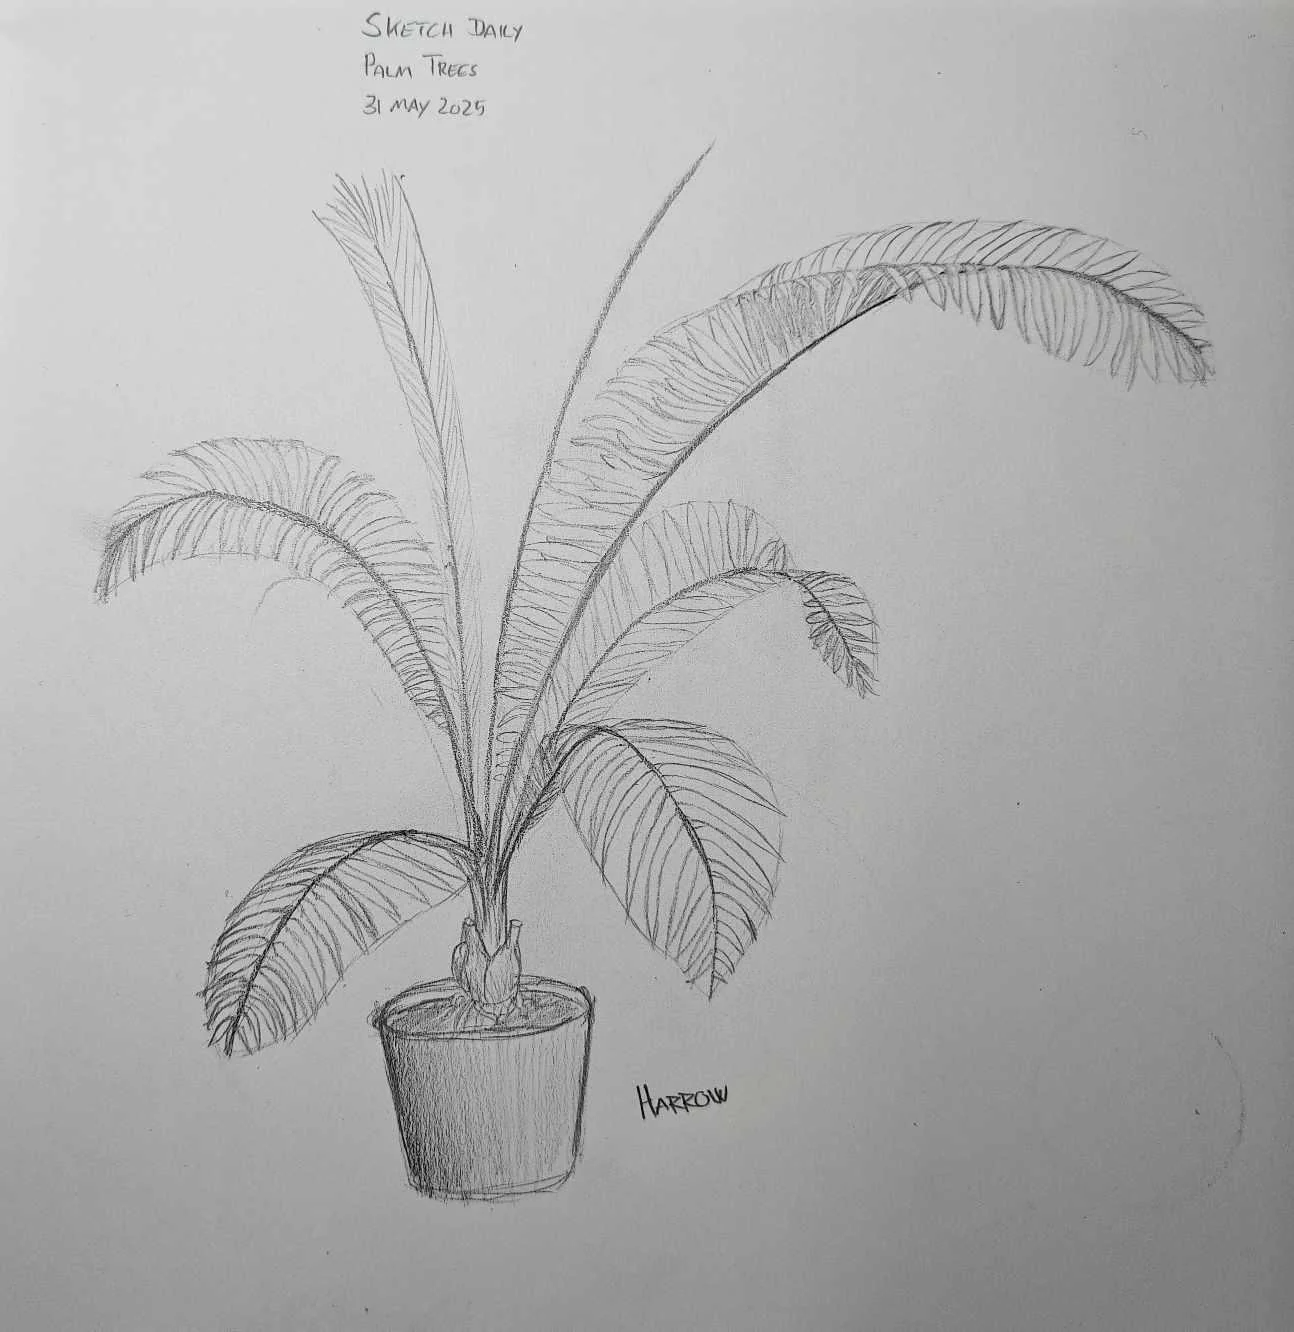 SKETCH DAILY
PALM TREES
31 MAY 2025
HARROW